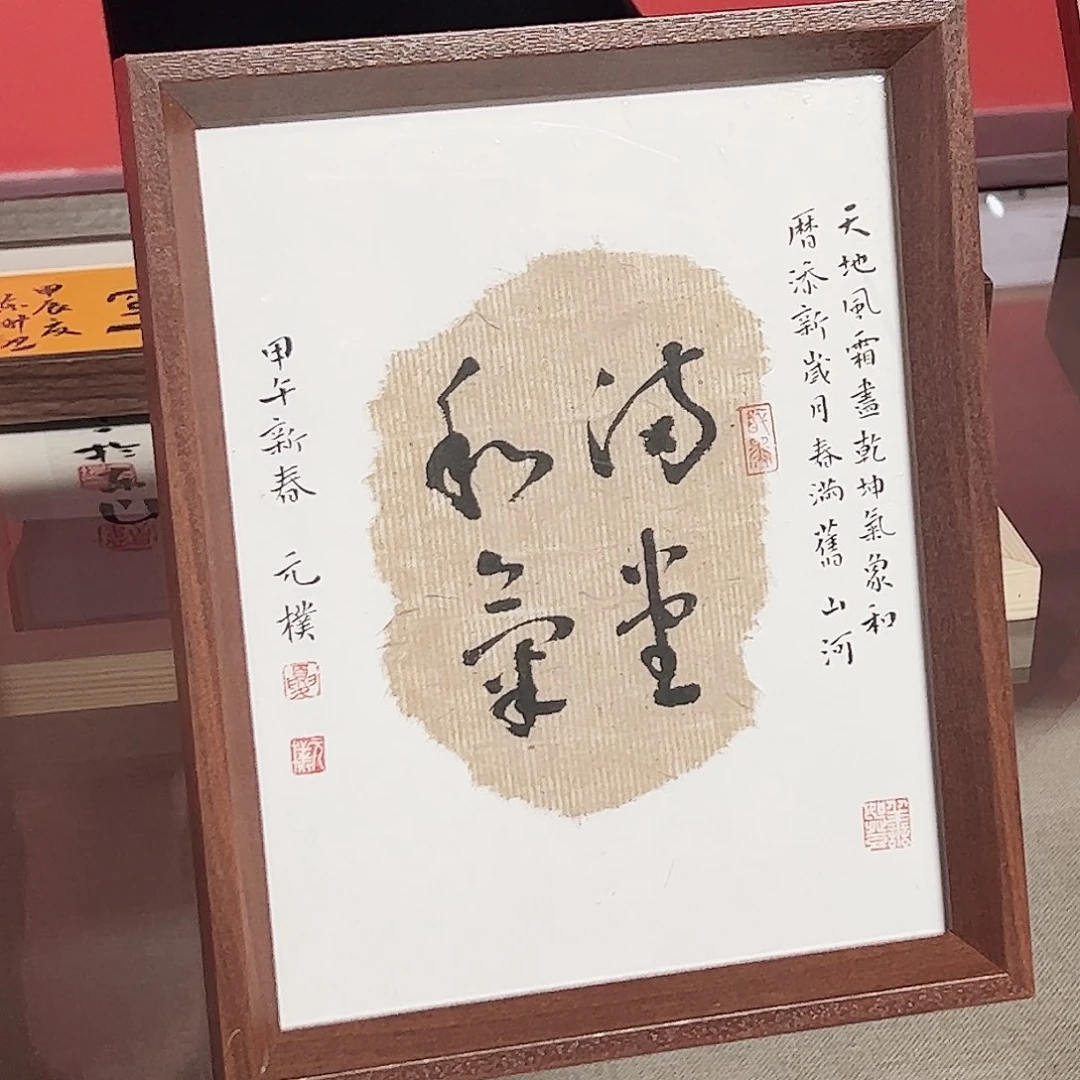 天地風霜盡乾坤氣象和
曆添新歲月春滿舊山河
滿堂
和氣
甲午新春 元樸
甲辰夏